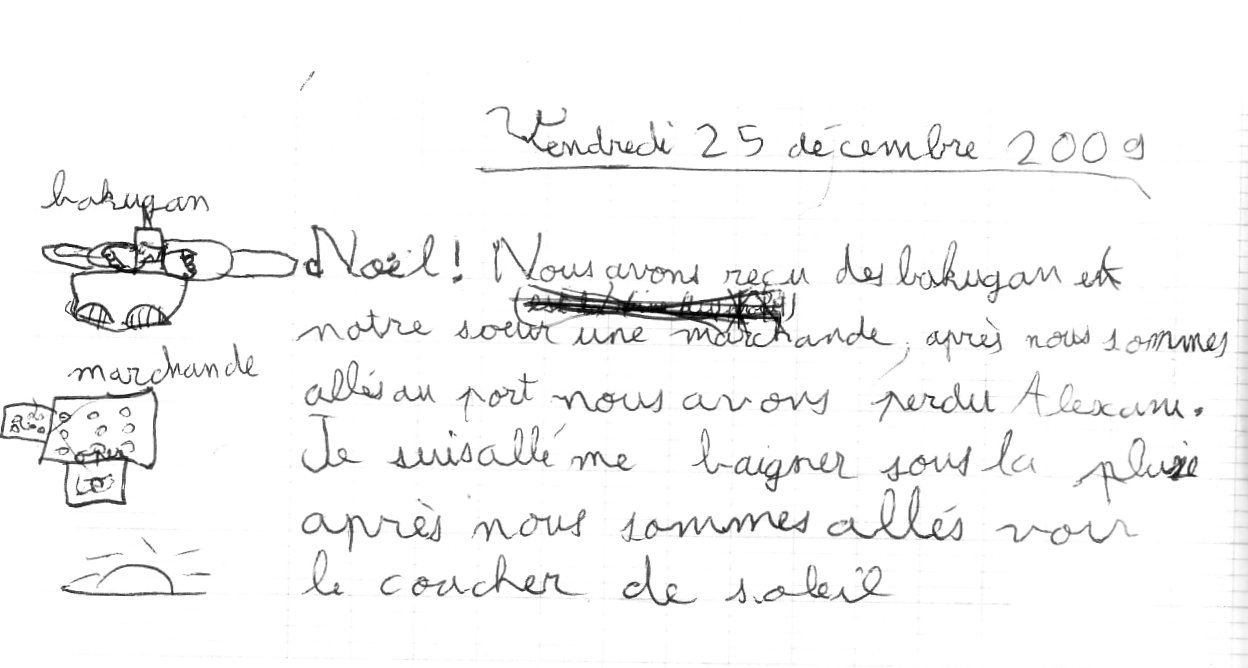 Vendredi 25 décembre 2009
bakugan
Noël! Nous avons reçu des bakugan et
notre soeur une marchande, après nous sommes
marchande
allés au port nous avons perdu Alexam.
Je suis allé me baigner sous la pluie
après nous sommes allés voir
le coucher de soleil